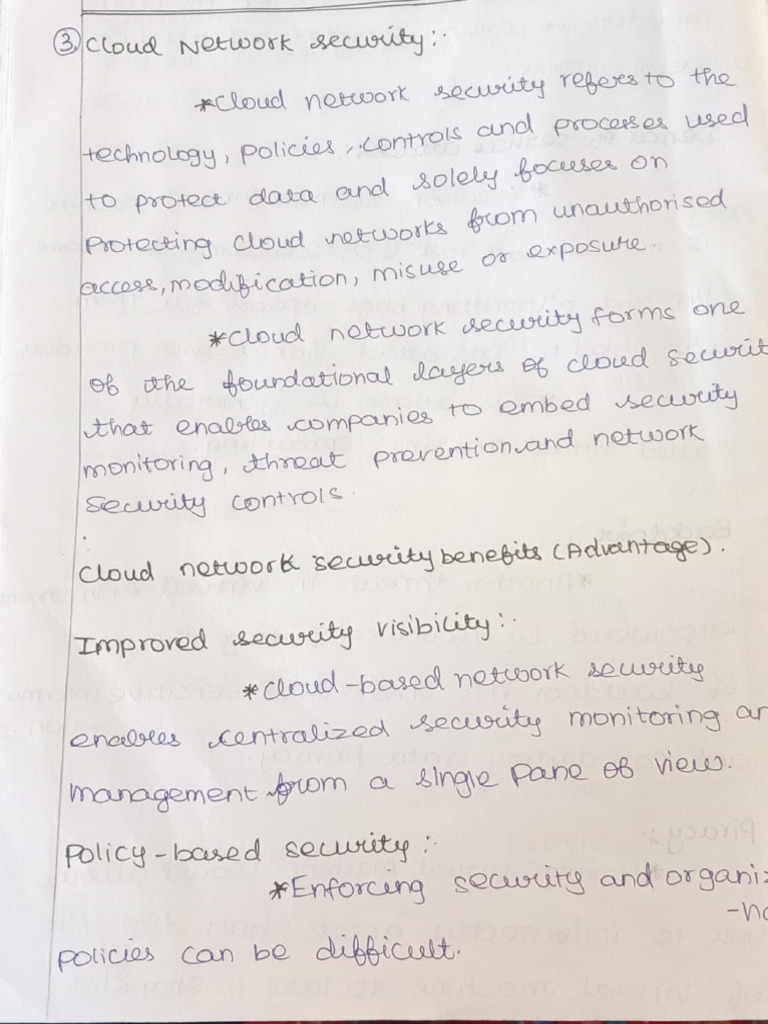 ③ Cloud Network security:-
*Cloud network security refers to the
technology, policies, controls and processes used
to protect data and solely focuses on
Protecting cloud networks from unauthorised
access, modification, misuse or exposure.
*Cloud network security forms one
of the foundational layers of cloud securit
that enables companies to embed security
monitoring, threat prevention and network
Security controls.
Cloud network security benefits (Advantage).
Improved security visibility:-
*Cloud-based network security
enables centralized security monitoring an
management from a single pane of view.
Policy-based security:-
*Enforcing security and organiz
-na
policies can be difficult.